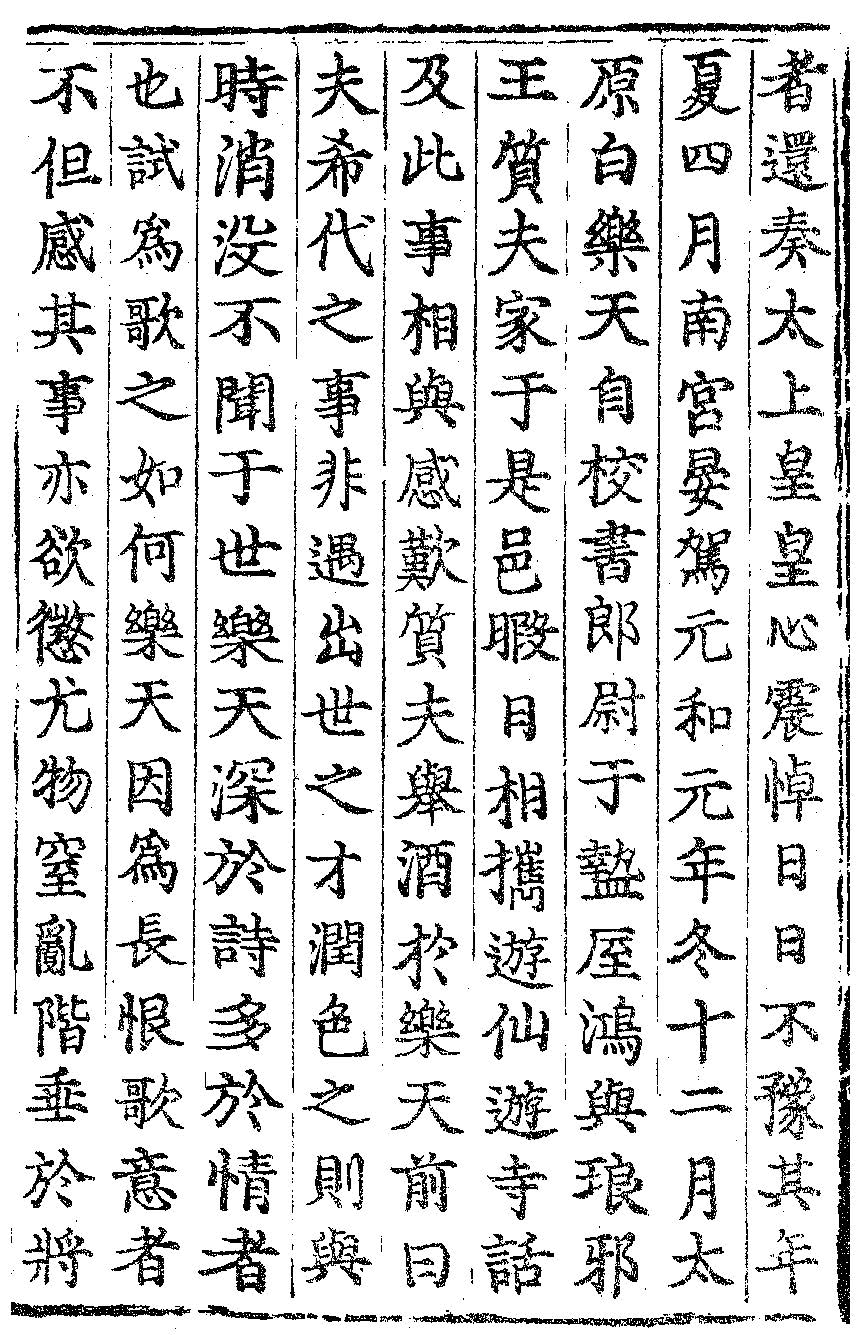 者還奏太上皇皇心震悼日日不豫其年
夏四月南宮晏駕元和元年冬十二月太
原白樂天自校書郎尉于盩厔鴻與琅邪
王質夫家于是邑暇日相攜遊仙遊寺話
及此事相與感歎質夫舉酒於樂天前曰
夫希代之事非遇出世之才潤色之則與
時消没不聞于世樂天深於詩多於情者
也試爲歌之如何樂天因爲長恨歌意者
不但感其事亦欲懲尤物窒亂階垂於將